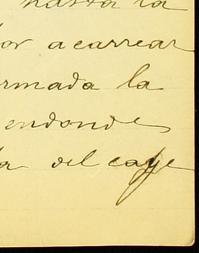 hasta la
por acarrear
rmada la
endonde
del caye